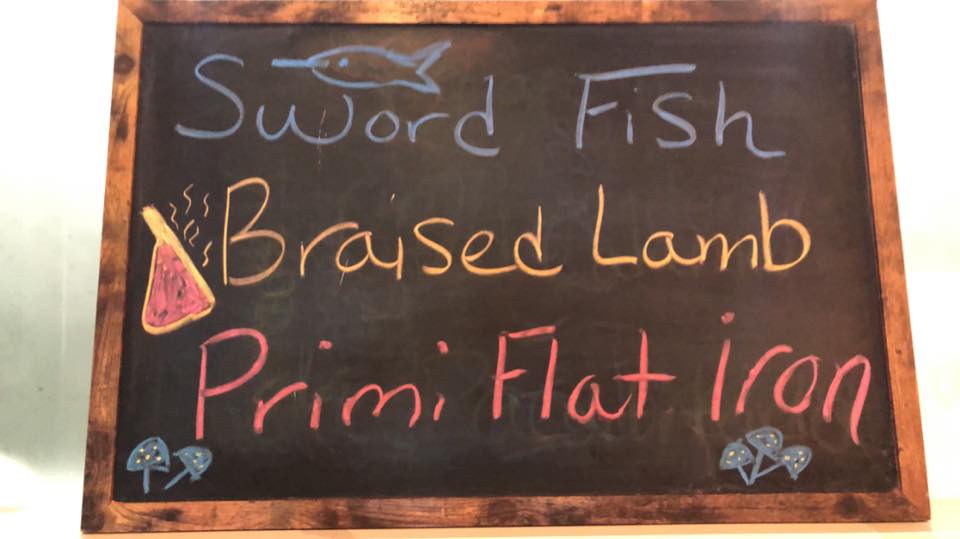 Sword Fish
Braised Lamb
Primi Flat Iron